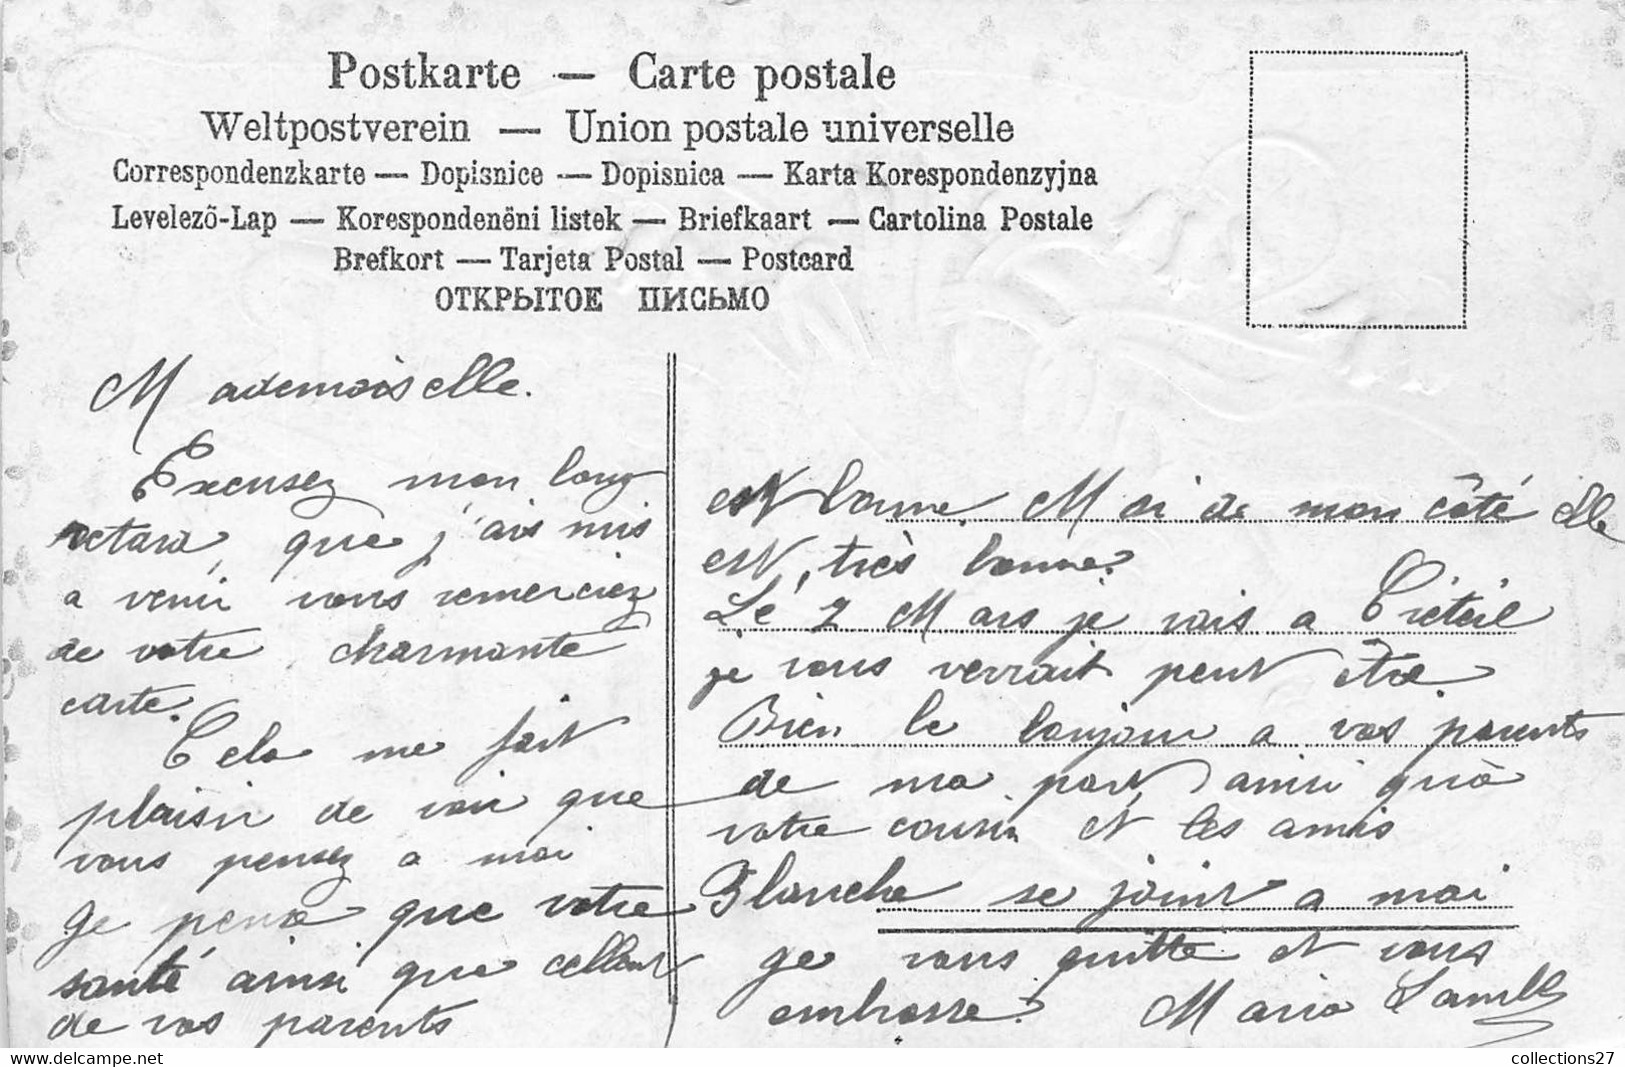 Postkarte — Carte postale
Weltpostverein — Union postale universelle
Correspondenzkarte — Dopisnice — Dopisnica — Karta Korespondenzyjna
Levelezõ-Lap — Korespondenëni listek — Briefkaart — Cartolina Postale
Brefkort — Tarjeta Postal — Postcard
ОТКРЫТОЕ ПИСЬМО
Mademoiselle.
Excusez mon long
retard, que j'ais mis
a venir vous remerciez
de votre charmante
carte.
Cela me fait
plaisir de voir que
vous pensez a moi
Je pense que votre
santé ainsi que
de vos parents
est bonne. Moi de mon côté elle
est, très bonne.
Le 2 Mars je vais a Créteil
je vous verrait peut être.
Bien le bonjour a vos parents
de ma part, ainsi qu'à
votre cousin et les amis
Blanche se joint a moi
Je vous quitte et vous
embrasse. Maria
collections27